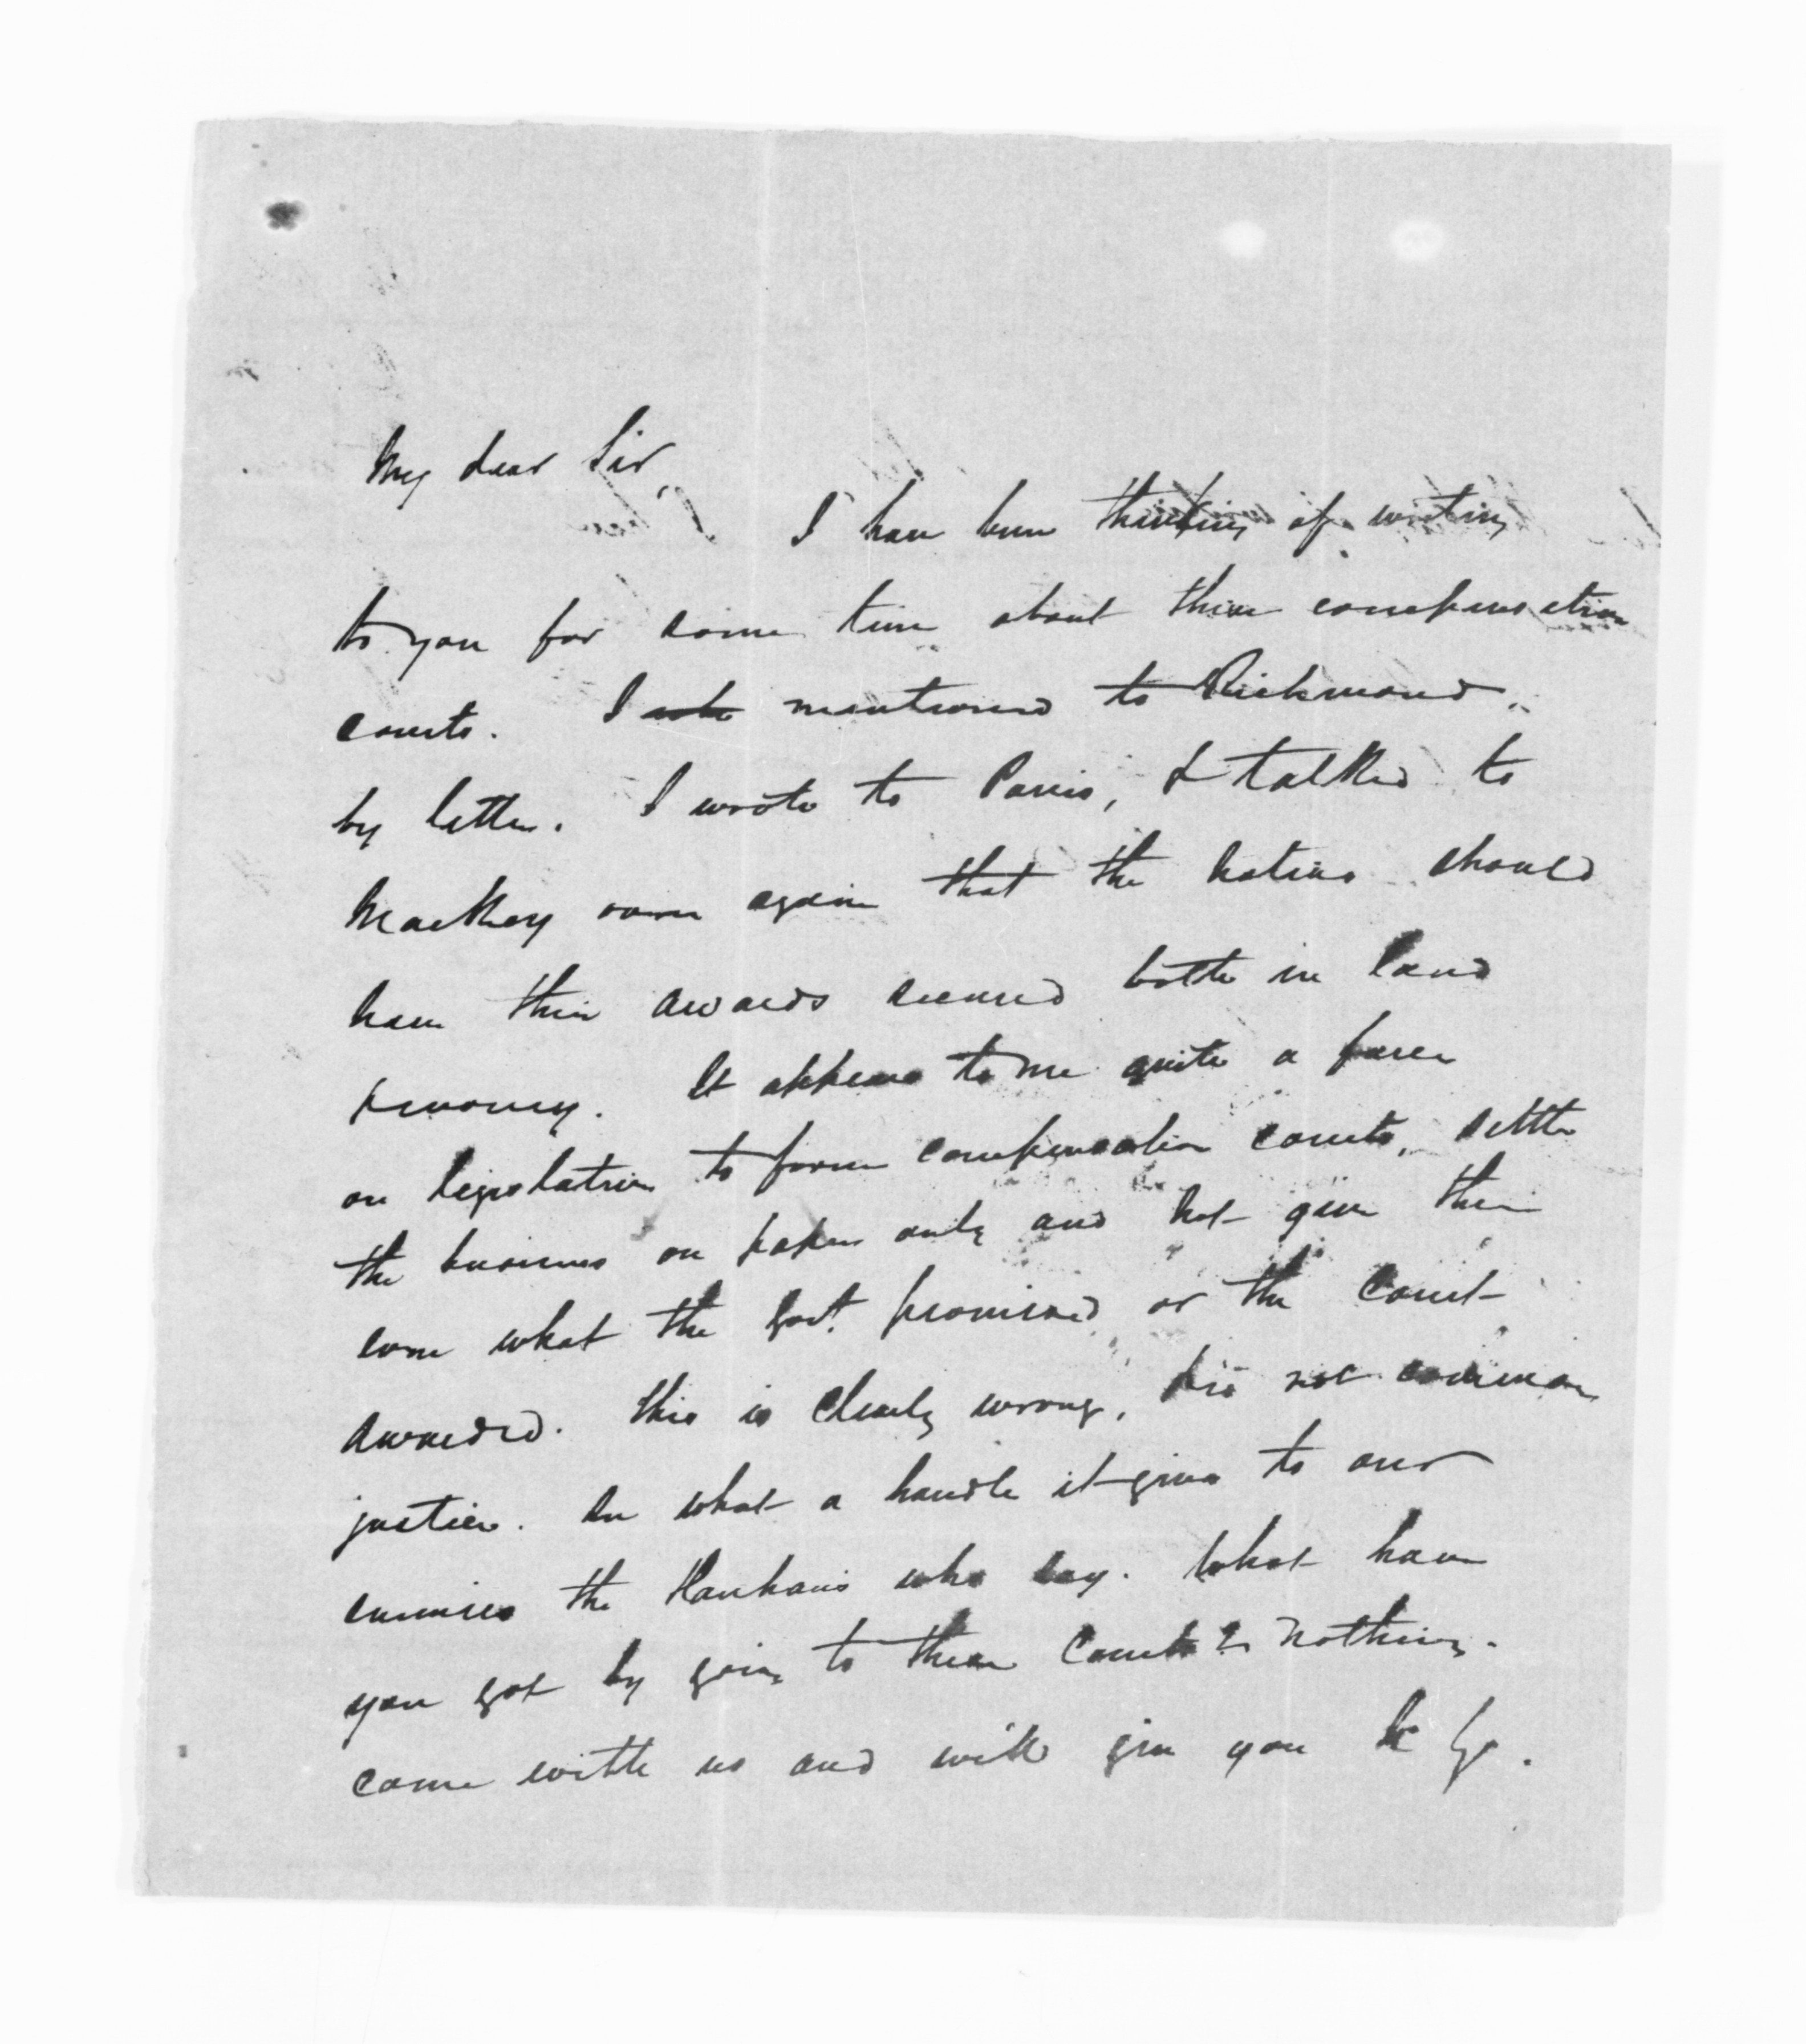 My dear Sir,
I have been thinking of writing
to you for some time about these compensation
courts. I mentioned to Richmond
by letter. I wrote to Parris, & talked to
Mackay over again that the natives should
have their awards secured both in land
& money. It appears to me quite a farce
on legislation to form compensation courts, settle
the business on paper only and not give them
even what the Govt. promised or the Court
awarded. This is clearly wrong, tis not common
justice. An what a handle it gives to our
enemies the Hauhaus who say. What have
you got by going to these Courts? Nothing.
come with us and will give you